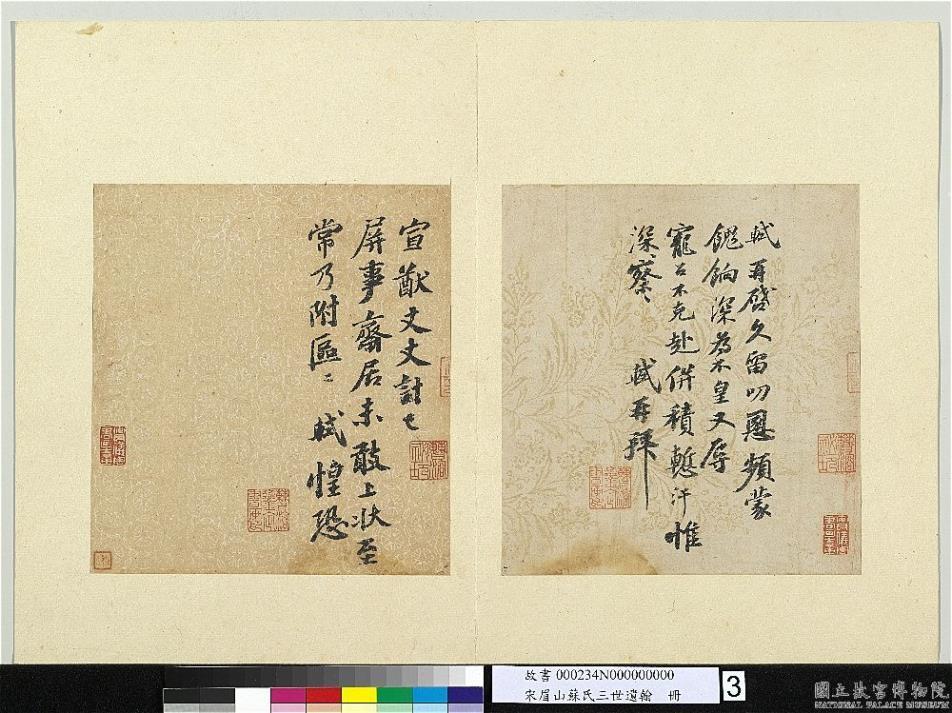 軾再啓久留叨恩頻蒙
餽餉深為不皇又辱
寵召不克赴併積慙汗惟
深〻察〻 軾再拜
宣猷丈丈計已
屏事齋居未敢上狀至
常乃附區〻 軾惶恐
故書 000234N000000000
宋眉山蘇氏三世遺翰 冊
3
國立故宮博物院
NATIONAL PALACE MUSEUM